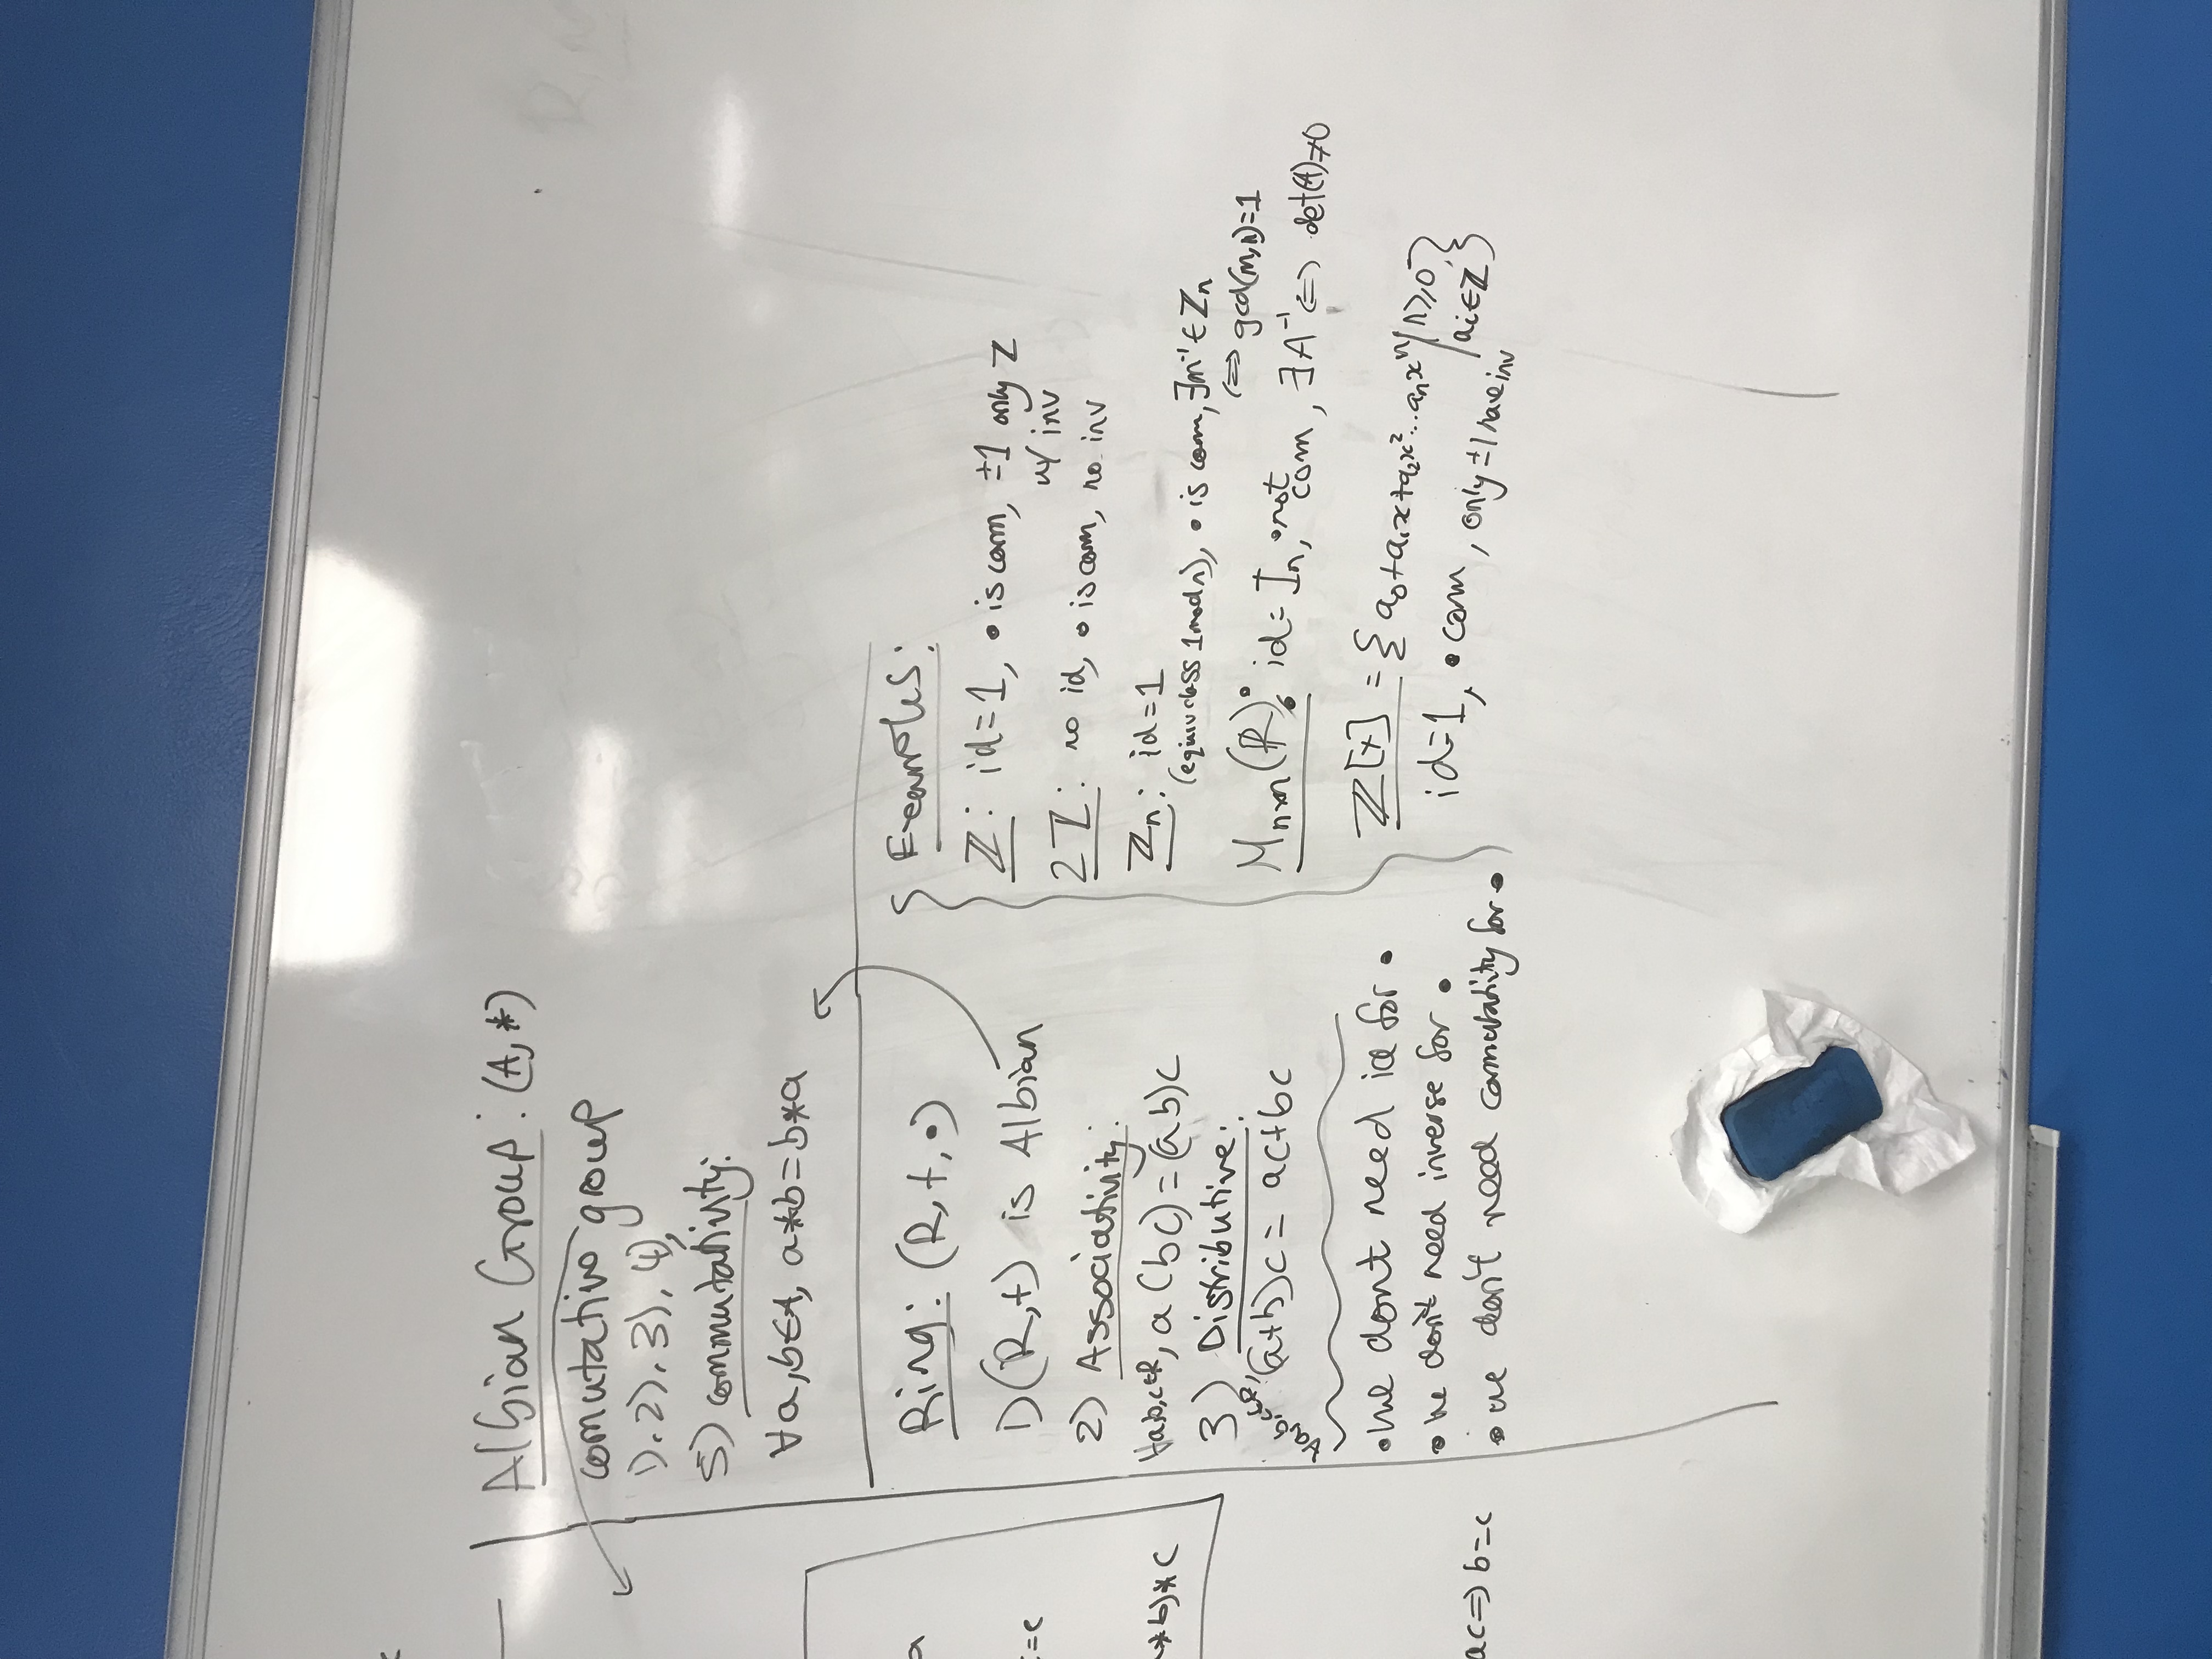 Albian Group: (A, *)
comutative group
1), 2), 3), 4),
5) commutativity:
∀a,b∈A, a*b=b*a
Ring: (R, +, •)
1) (R,+) is Albian
2) Associativity:
∀a,b,c∈R, a(bc)=(ab)c
3) Distributive:
∀a,b,c∈R, (a+b)c = ac+bc
• we dont need id for •
• we don't need inverse for •
• we don't need commutativity for •
Examples:
ℤ: id=1, • is com, ±1 only ℤ
w/ inv
2ℤ: no id, • is com, no inv
ℤn: id=1
(equiv class 1 mod n), • is com, ∃m⁻¹∈ℤn
⟺ gcd(m,n)=1
Mnxn(ℝ): id=In, • not com, ∃A⁻¹ ⟺ det(A)≠0
ℤ[x] = {a₀+a₁x+a₂x²...aₙxⁿ | n≥0, aᵢ∈ℤ}
id=1, • com, only ±1 have inv
=e
*b)*c
ac⟹b=c